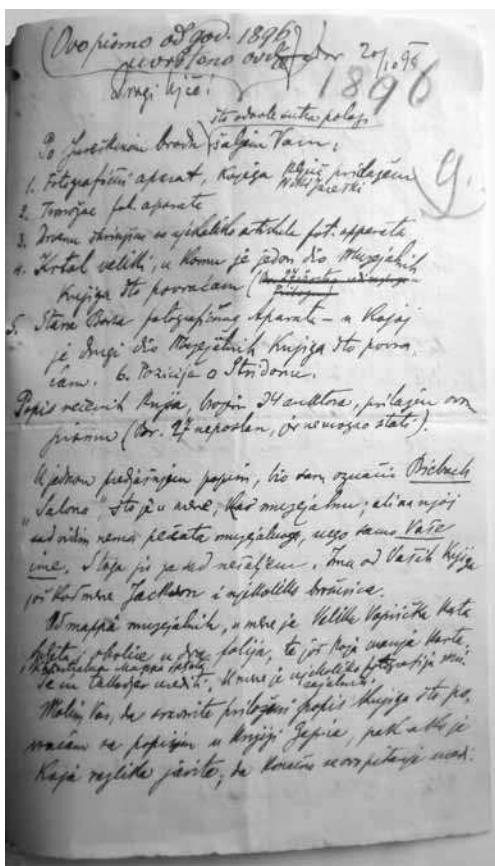 (Ovo pismo od god. 1896
uvršteno ovdje) 20/10 98
1896
Dragi Ujče!
što odavle sutra polazi
Po Jureškinom brodu šaljem Vam:
1. Fotografični aparat, Knjiga prilažem
9.
2. Tronožac fot. aparata
3. Drvenu škrinjicu sa njekoliko artikala fot. apparata
4. Krtol veliki, u komu je jedan dio Muzejalnih
Knjiga što povraćam
5. Stara Borsa fotografičnog aparata – u Kojoj
je drugi dio Muzejalnih Knjiga što povra,
ćam. 6. Pozicija o Stridonu.
Popis rečenih Knjiga, brojem 34 auktora, prilažem ovom
pismu (Br. 27 neposlan, jer nemogao stati).
U jednom predjašnjem popisu, bio sam označio Bisbuch
"Salona" što je u mene, Kod muzejalnu; ali na njoj
sad vidim nema pečata muzejalnoga, nego samo Vaše
ime. Stoga ju za sad nešaljem. Ima od Vaših Knjiga
još Kod mene Jackson i njekoliko brošurica.
Od mappâ muzejalnih, u mene je Velika Vojnička Karta
Splita i okolice u dva folija, te još Koja manja Karta
U mene je njekoliko fotografija mu,
zejalnih.
Molim Vas, da sravnite priloženi popis Knjiga što po,
vraćam sa popisom u Knjizi Zepića, pak ako je
Koja razlika javite, da Konačno ovo pitanje uredi.